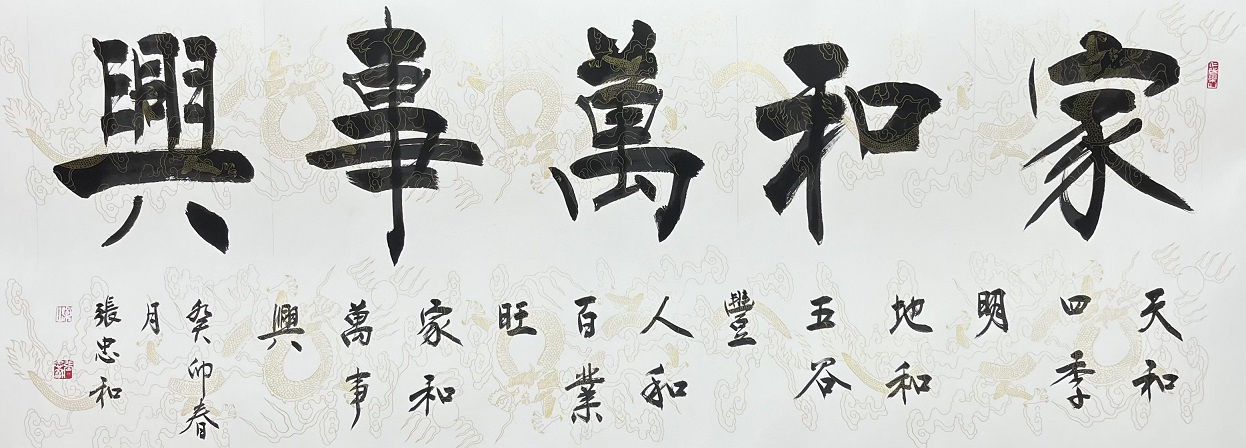 家和萬事興
天和
四季
明
地和
五谷
豐
人和
百業
旺
家和
萬事
興
癸卯春
月
張忠和